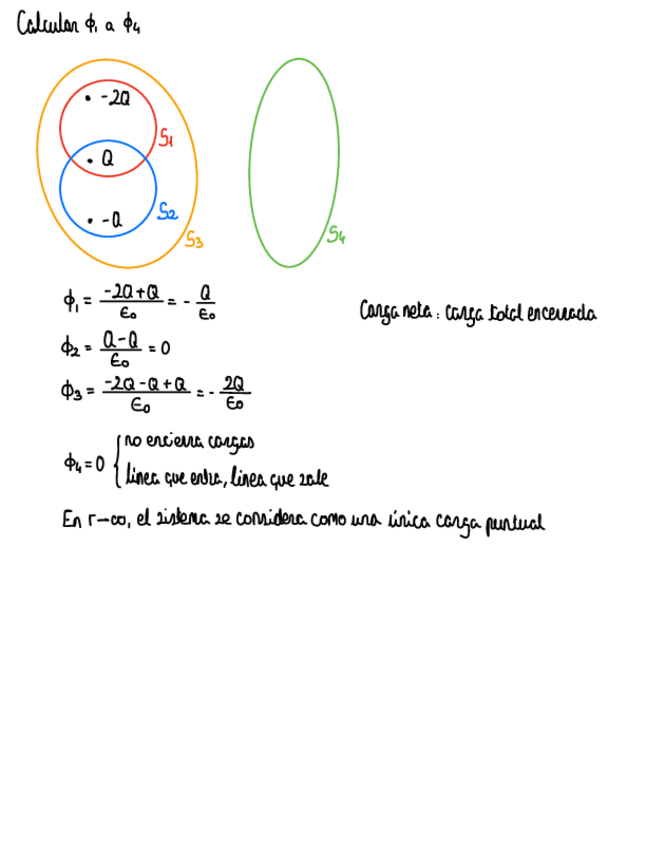 Calcular ϕ₁ a ϕ₄
• -2Q
S₁
• Q
S₂
• -Q
S₃
S₄
ϕ₁ = (-2Q+Q)/ε₀ = - Q/ε₀
Carga neta: carga total encerrada
ϕ₂ = (Q-Q)/ε₀ = 0
ϕ₃ = (-2Q-Q+Q)/ε₀ = - 2Q/ε₀
ϕ₄ = 0 { no encierra cargas
línea que entra, línea que sale
En r→∞, el sistema se considera como una única carga puntual